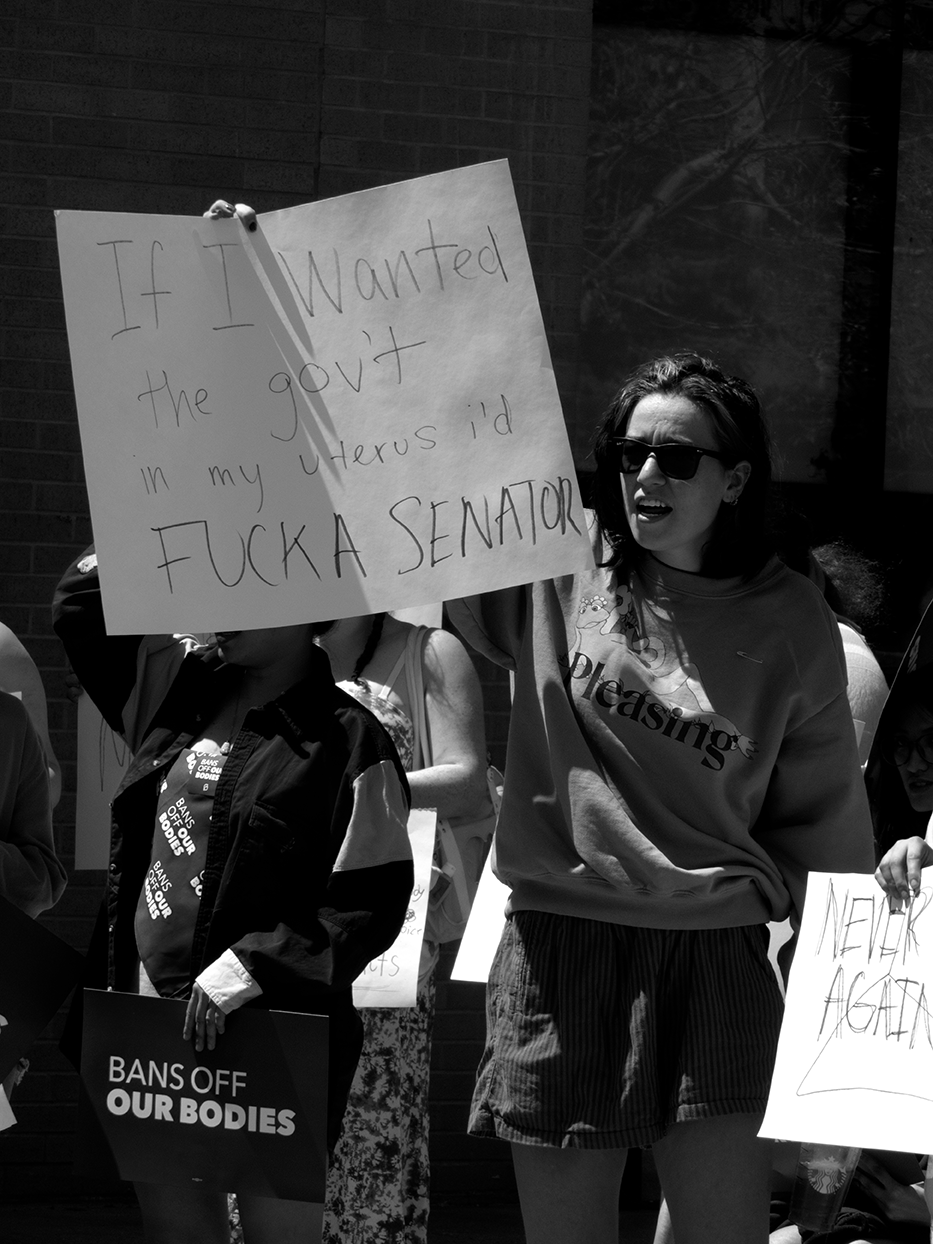 If I Wanted
the gov't
in my uterus i'd
FUCK A SENATOR
Pleasing
BANS
OFF OUR
BODIES
BANS
OFF OUR
BODIES
BANS
OFF OUR
BODIES
BANS OFF
OUR BODIES
NEVER
AGAIN